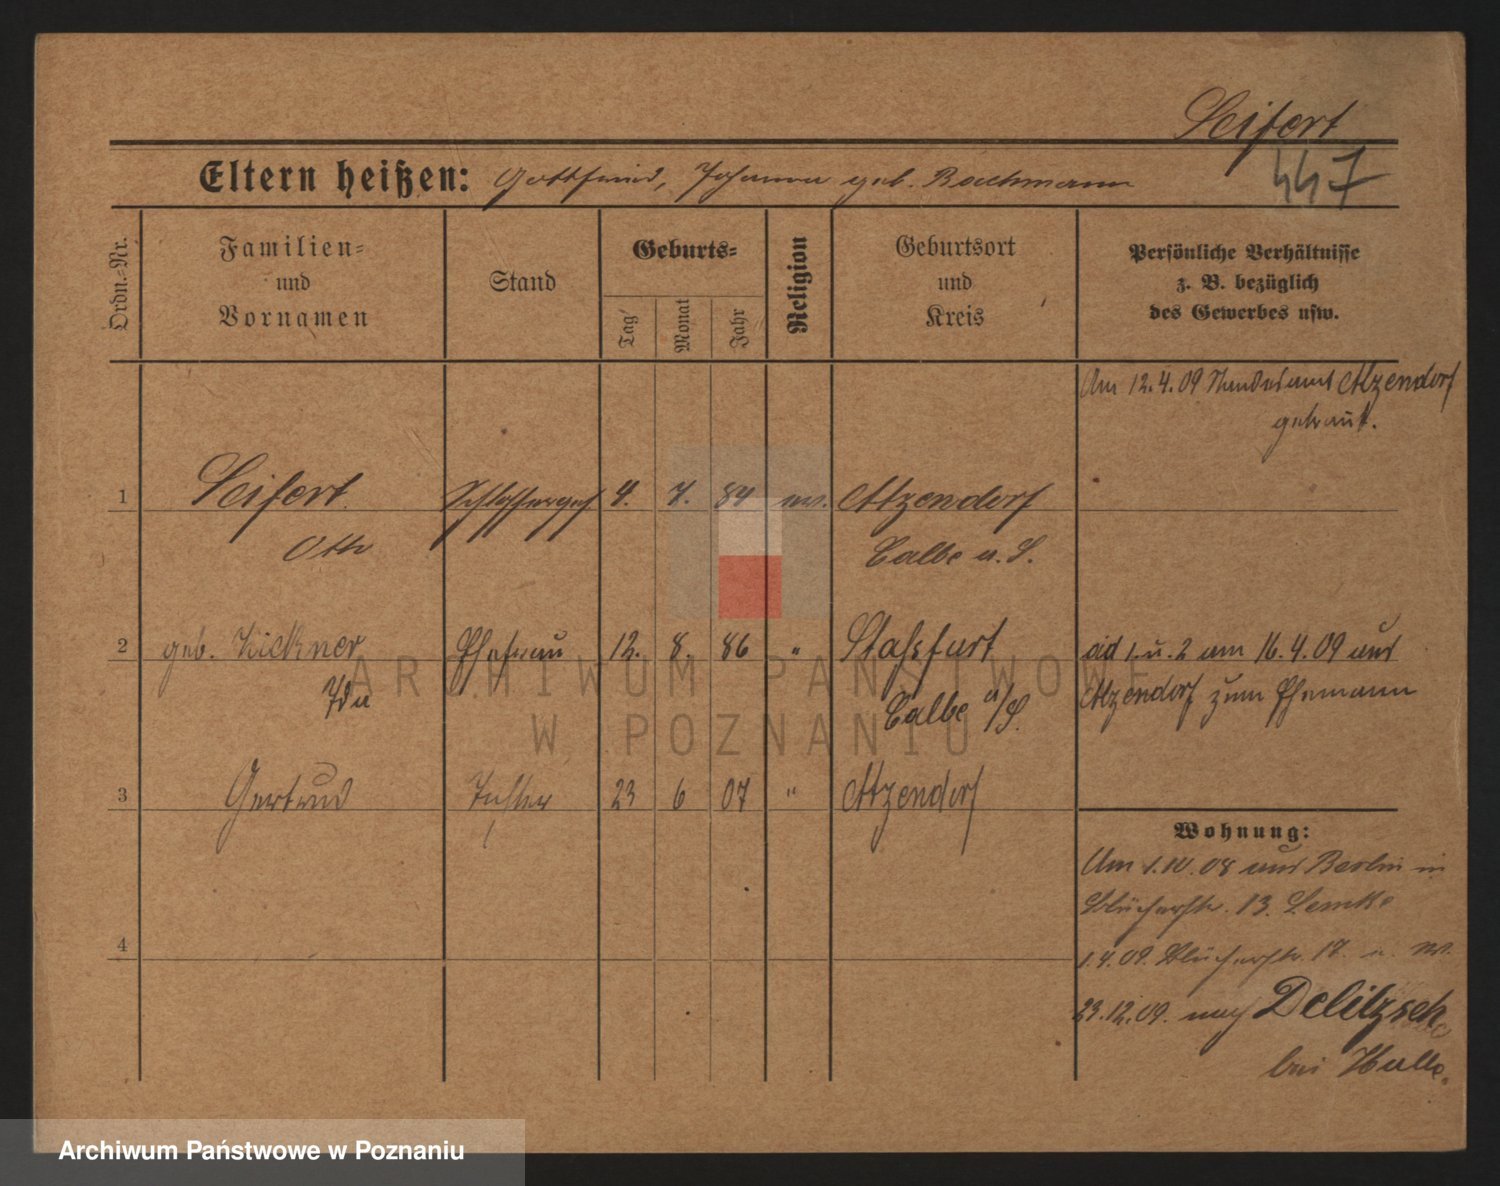 Seifert
447
Eltern heißen: Gottfried, Johanna geb. Bachmann
Ordn.-Nr.
Familien-
und
Vornamen
Stand
Geburts-
Tag
Monat
Jahr
Religion
Geburtsort
und
Kreis
Persönliche Verhältnisse
z. B. bezüglich
des Gewerbes usw.
Am 12.4.09 Standesamt Atzendorf
getraut.
1 Seifert Schlosserges. 4. 7. 84 ev. Atzendorf
Otto Calbe a. S.
2 geb. Zickner Ehefrau 12. 8. 86 " Staßfurt
Ida Calbe a/S.
ad 1. u. 2 am 16.4.09 aus
Atzendorf zum Ehemann
3 Gertrud Tochter 23 6 07 " Atzendorf
4
Wohnung:
Am 1.10.08 aus Berlin in
Blücherstr. 13. Lemke
1.4.09. Blücherstr. 17.
23.12.09. nach Delitzsch
bei Halle.
ARCHIWUM PAŃSTWOWE
W POZNANIU
Archiwum Państwowe w Poznaniu